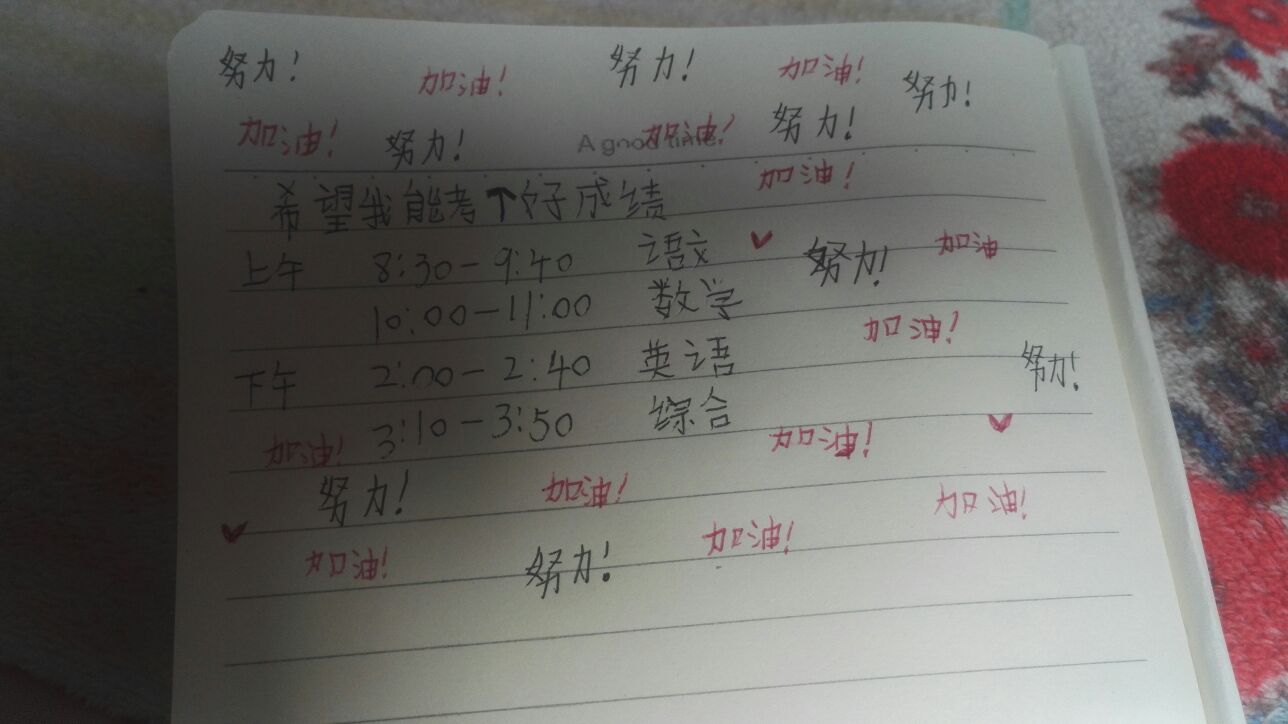 努力! 加油! 努力! 加油! 努力!
加油! 努力! A good time 加油! 努力!
加油!
希望我能考个好成绩
上午 8:30-9:40 语文 努力! 加油
10:00-11:00 数学 加油!
下午 2:00-2:40 英语 努力!
3:10-3:50 综合
加油! 加油!
努力! 加油! 加油!
加油! 努力! 加油!